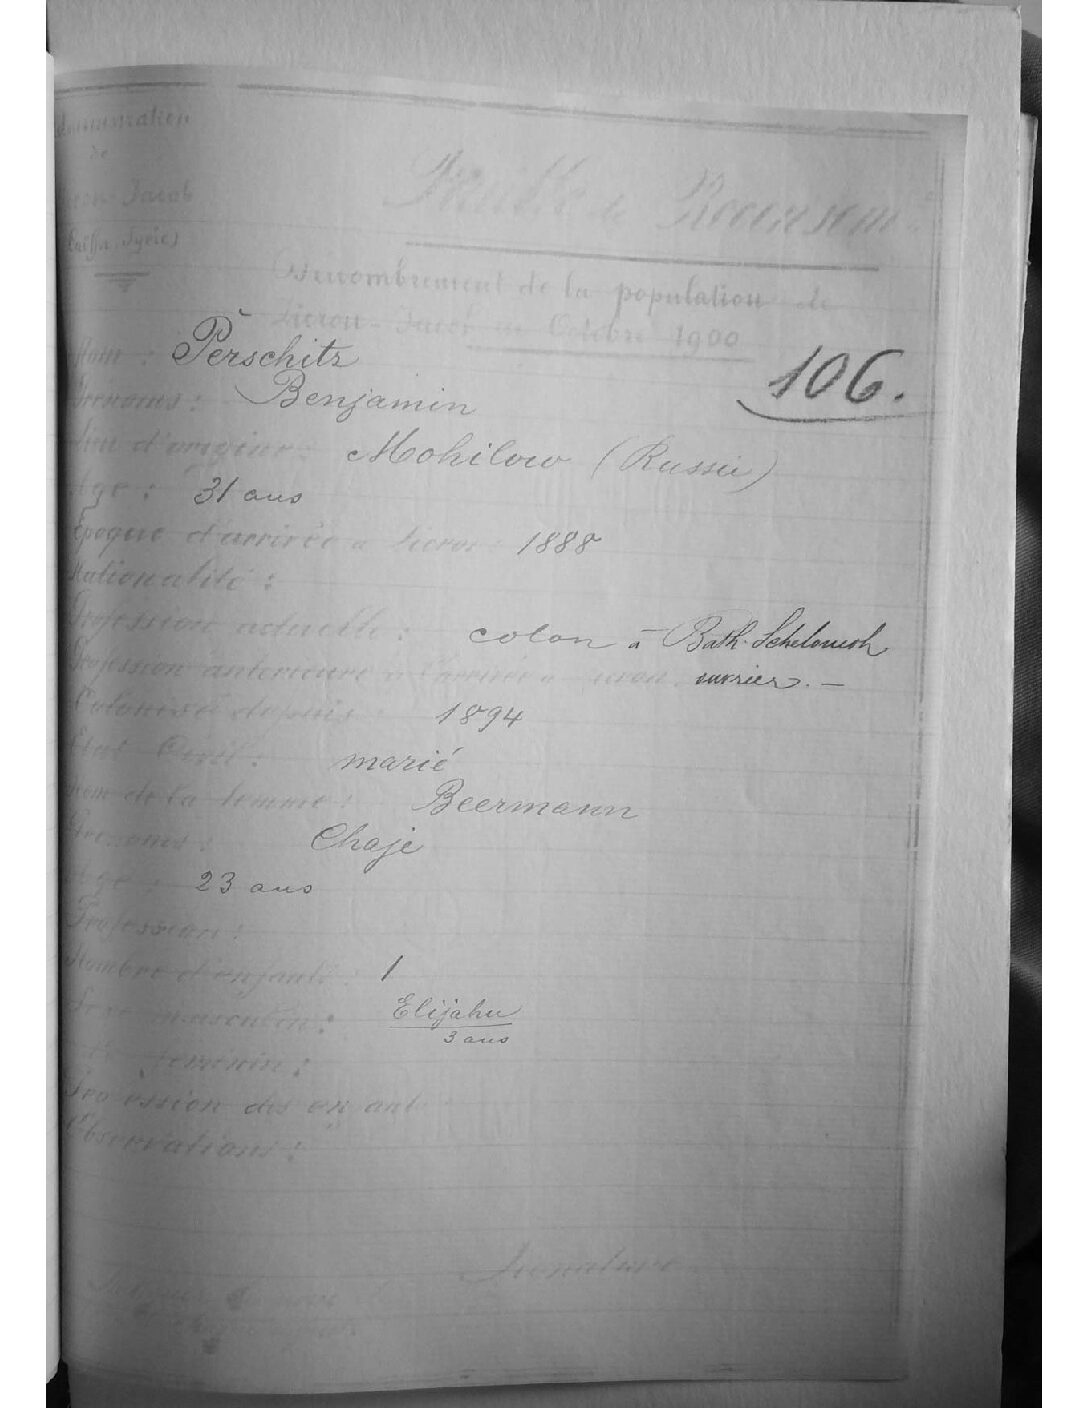 Administration
de
Zicron-Jacob
(Caïffa, Syrie)
Feuille de Recensem
Dénombrement de la population de
Zicron-Jacob en Octobre 1900
106.
Nom : Perschitz
Prénoms : Benjamin
Lieu d'origine : Mohilow (Russie)
Age : 31 ans
Epoque d'arrivée à Zicron : 1888
Nationalité :
Profession actuelle : colon à Bath-Schelomoh
Profession antérieure à l'arrivée à Zicron ouvrier. —
Colonisé depuis : 1894
Etat Civil : marié
Nom de la femme : Beermann
Prénoms : Chaje
Age : 23 ans
Profession :
Nombre d'enfants : 1
Sexe masculin : Elijahu
3 ans
Sexe féminin :
Profession des enfants
Observations :
Signature